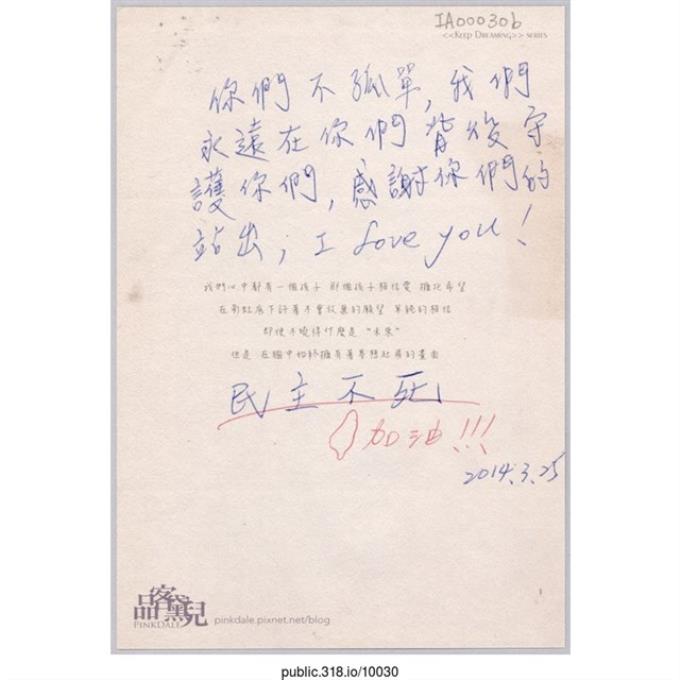 IA00030b
<<KEEP DREAMING>> SERIES
你們不孤單,我們
永遠在你們背後守
護你們,感謝你們的
站出,I love you!
我們心中都有一個孩子 那個孩子相信愛 擁抱希望
在彩虹底下許著不會放棄的願望 單純的相信
即使不曉得什麼是 "未來"
但是 在腦中始終擁有著夢想起飛的畫面
民主不死
加油!!!
2014.3.25
品客黛兒
PINKDALE
pinkdale.pixnet.net/blog
public.318.io/10030